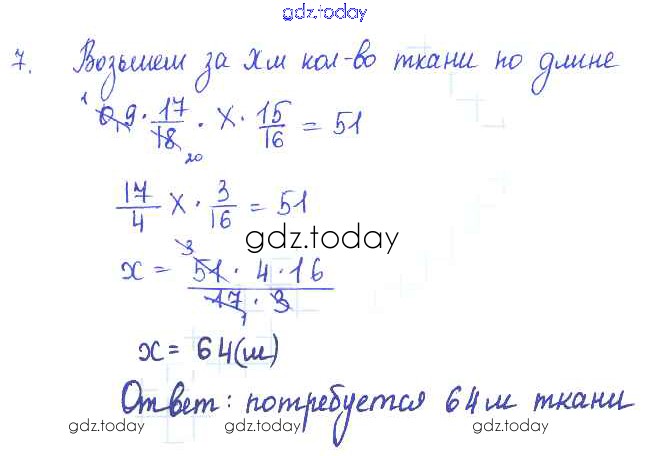 gdz.today
7. Возьмем за Xм кол-во ткани по длине
1 0,9 · 17/18 20 · X · 15/16 = 51
17/4 X · 3/16 = 51
gdz.today
x = 3 51 · 4 · 16 / 17 · 3 1
x = 64(м)
Ответ: потребуется 64м ткани
gdz.today gdz.today gdz.today